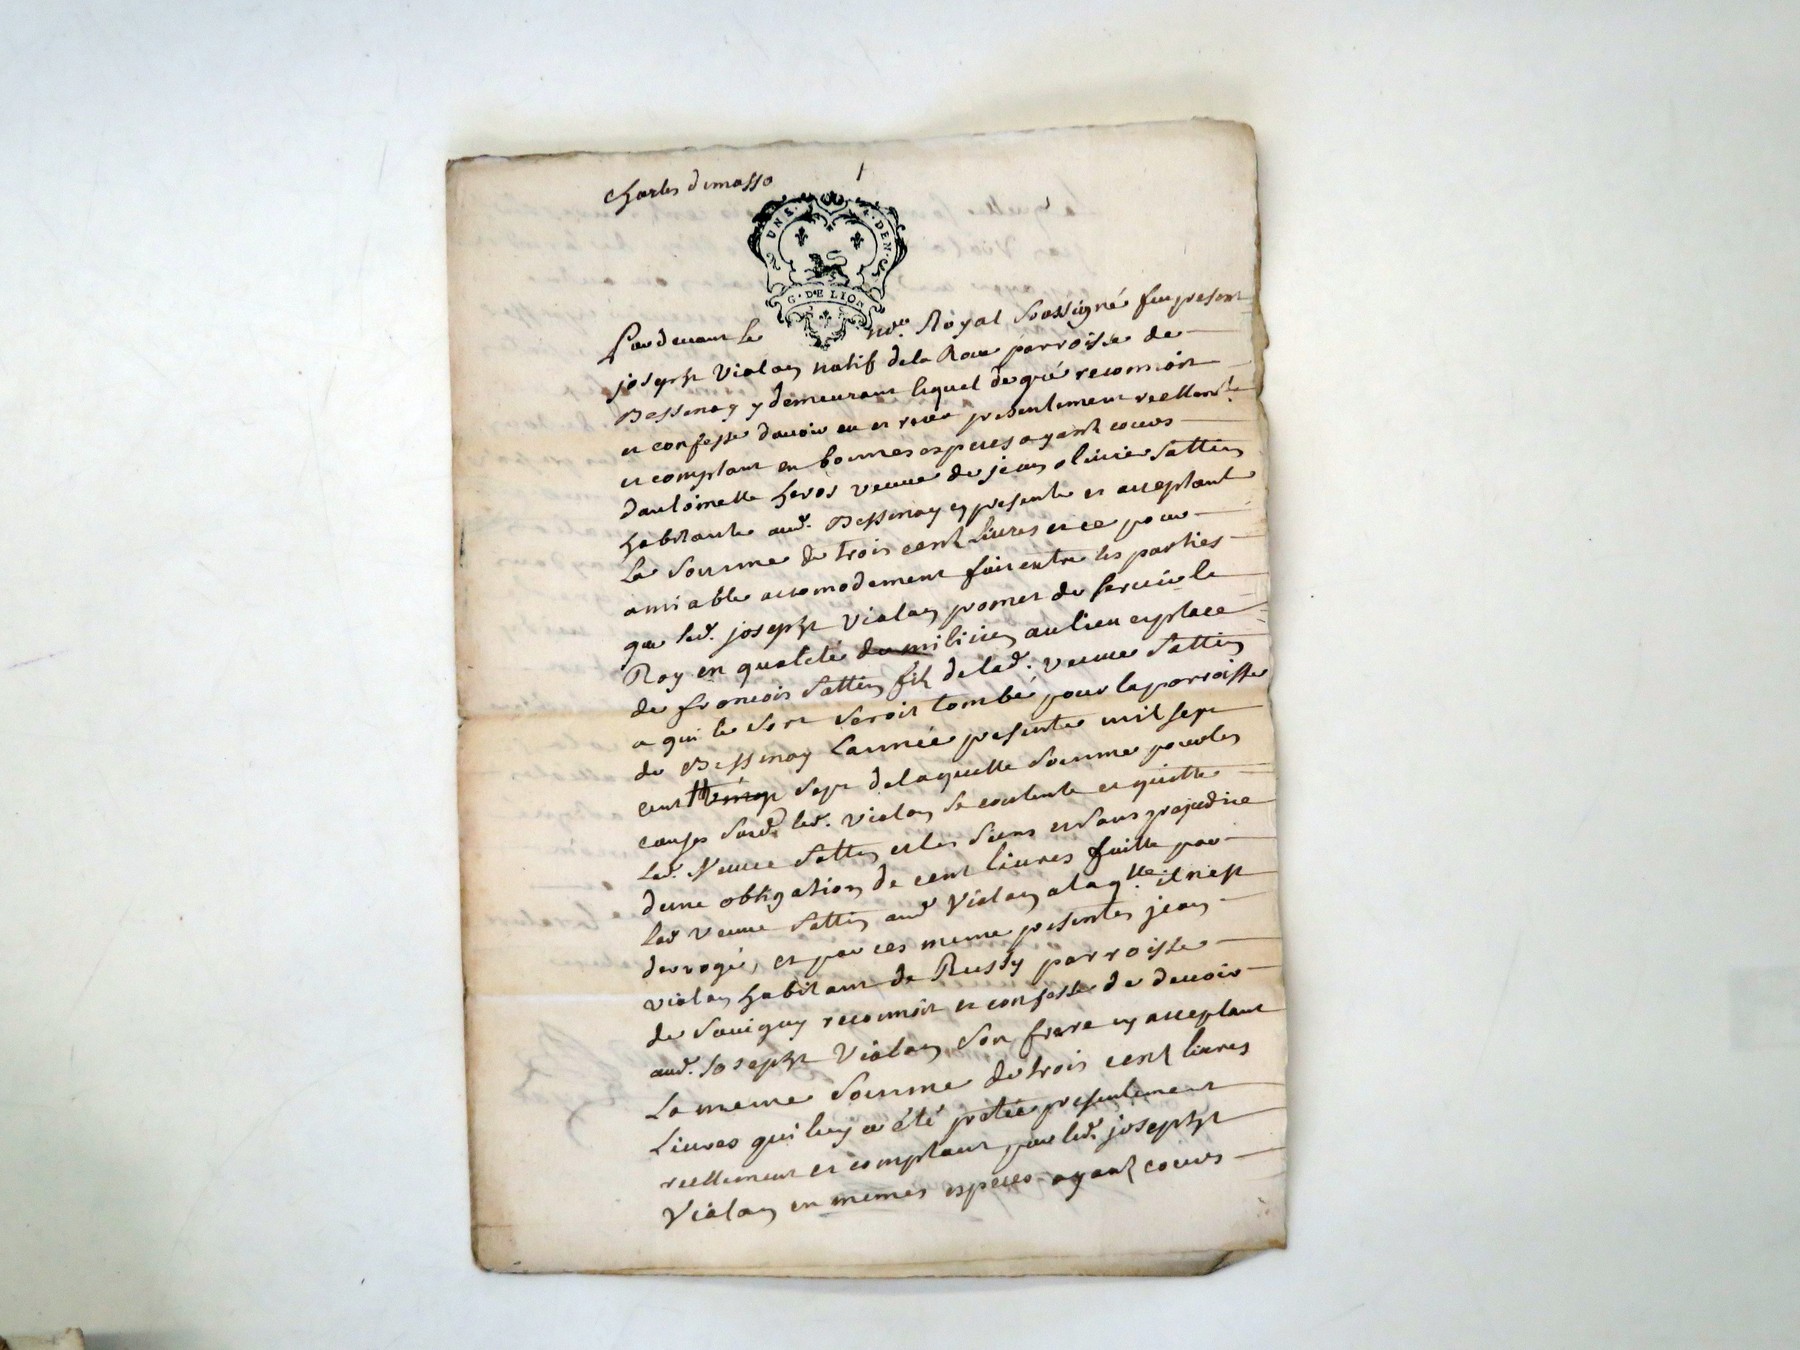 charles demasso
1
UN S. 4. DEN.
G. DE LION
Pardevant Le no.re Royal Soussigné fut present
joseph Vialay natif de la Roue parroisse de
Bessenay y demeurant lequel de gré reconnoit
et confesse davoir eu et receu presentement reellem.t
et comptant en bonnes especes ayant cours
dantoinette heros veuve de jean olivier Sattin
habitante aud. Bessenay cy presente et acceptant
La Somme de trois cent livres et ce pour
amiable accomodement fait entre les parties
que led. joseph Vialay promet de servir le
Roy en qualité de milicien au lieu et place
de francois Sattin fils de lad. veuve Sattin
a qui le Sort Seroit tombé pour la parroisse
de Bessenay Lannée presente mil sept
cent Sept de laquelle Somme pour les
causes Susd. led. Vialay Se contente et quitte
Lad. Veuve Sattin et les Siens et Sans prejudice
dune obligation de cent livres faitte par
Lad veuve Sattin aud Vialay a laq.lle il nest
derrogé, et par ces meme presentes jean
vialay habitant de Russy parroisse
de Savigny reconnoit et confesse de devoir
aud. Joseph Vialay Son frere cy acceptant
La meme Somme de trois cent livres
Livres qui luy a été pretée presentement
reellement et comptant par led. joseph
Vialay en memes especes ayant cours